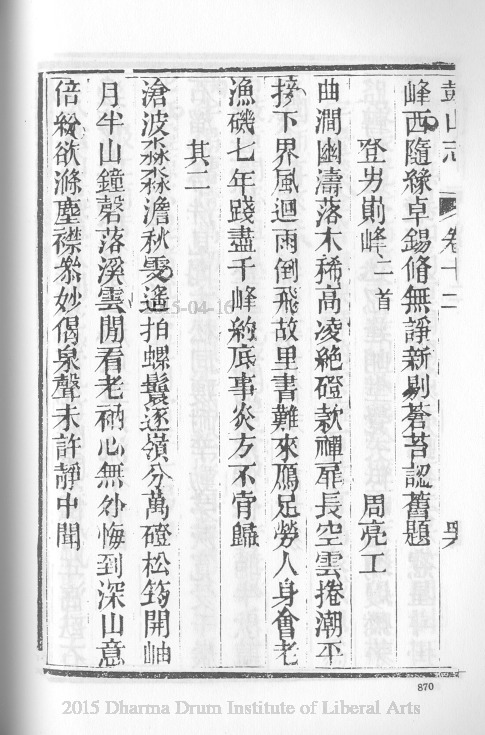 鼓山志 卷十二
峰西隨緣卓錫脩無諍新剔蒼苔認舊題
登屴崱峰二首 周亮工
曲澗幽濤落木稀高凌絕磴款禪扉長空雲捲潮平
接下界風迴雨倒飛故里書難來鴈足勞人身會老
漁磯七年踐盡千峰約底事炎方不肯歸
其二
滄波淼淼澹秋雯遙拍螺鬟逐嶺分萬磴松筠開岫
月半山鐘磬落溪雲閒看老衲心無外悔到深山意
倍紛欲滌塵襟叅妙偈泉聲未許靜中聞
5-04-16
870
2015 Dharma Drum Institute of Liberal Arts